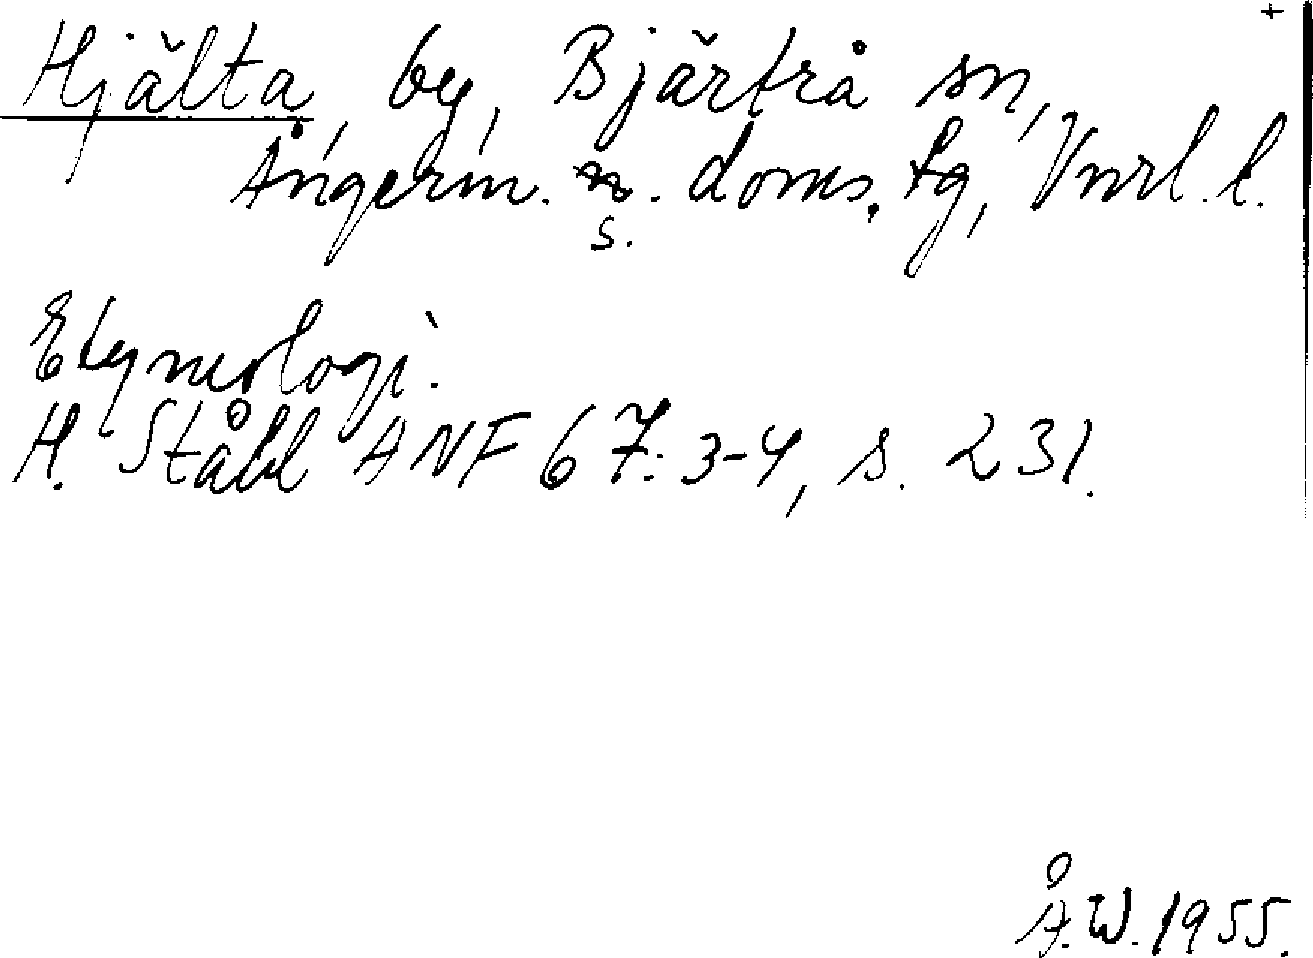 +
Hjälta, by, Bjärtrå sn,
Ångerm. s. doms. tg, Vnrl. l.
Etymologi.
H. Ståhl ANF 67:3-4, s. 231.
Å.W. 1955.